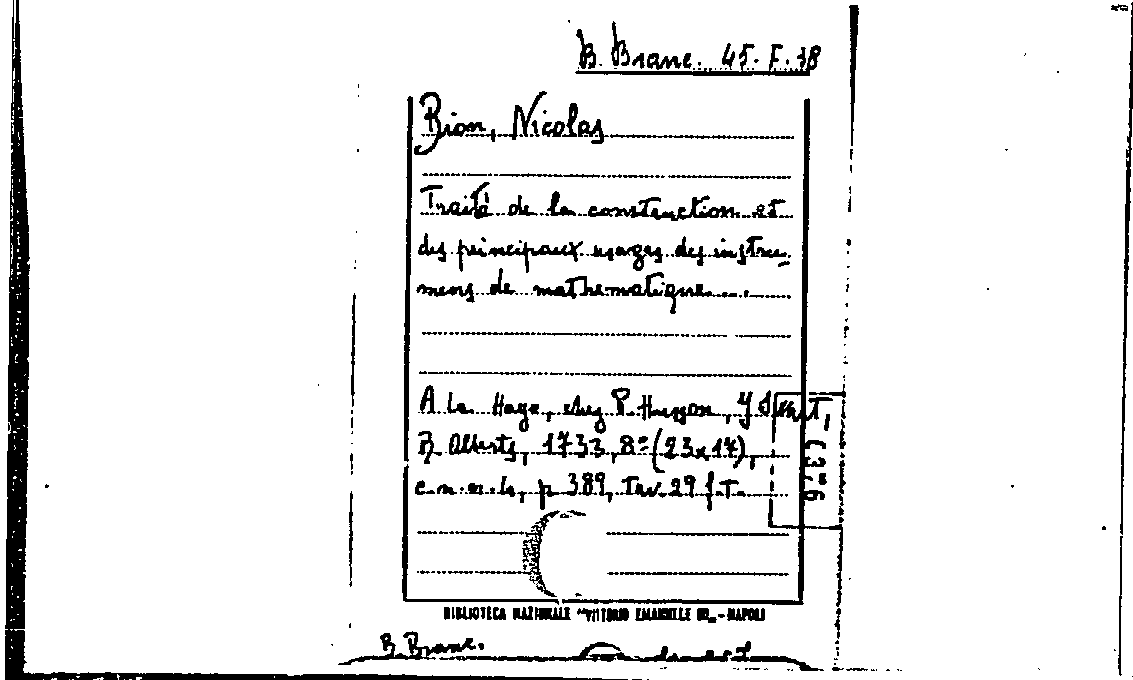 B. Branc. 45. F. 38
Bion, Nicolas
Traité de la construction et
des principaux usages des instru-
mens de mathematique....
A la Haye, chez P. Husson, J.
R. Alberts, 1733, 8º (23x17),
c.n.n. 4, p. 389, tav. 29 f.t.
BIBLIOTECA NAZIONALE "VITTORIO EMANUELE III„ - NAPOLI
B. Branc.